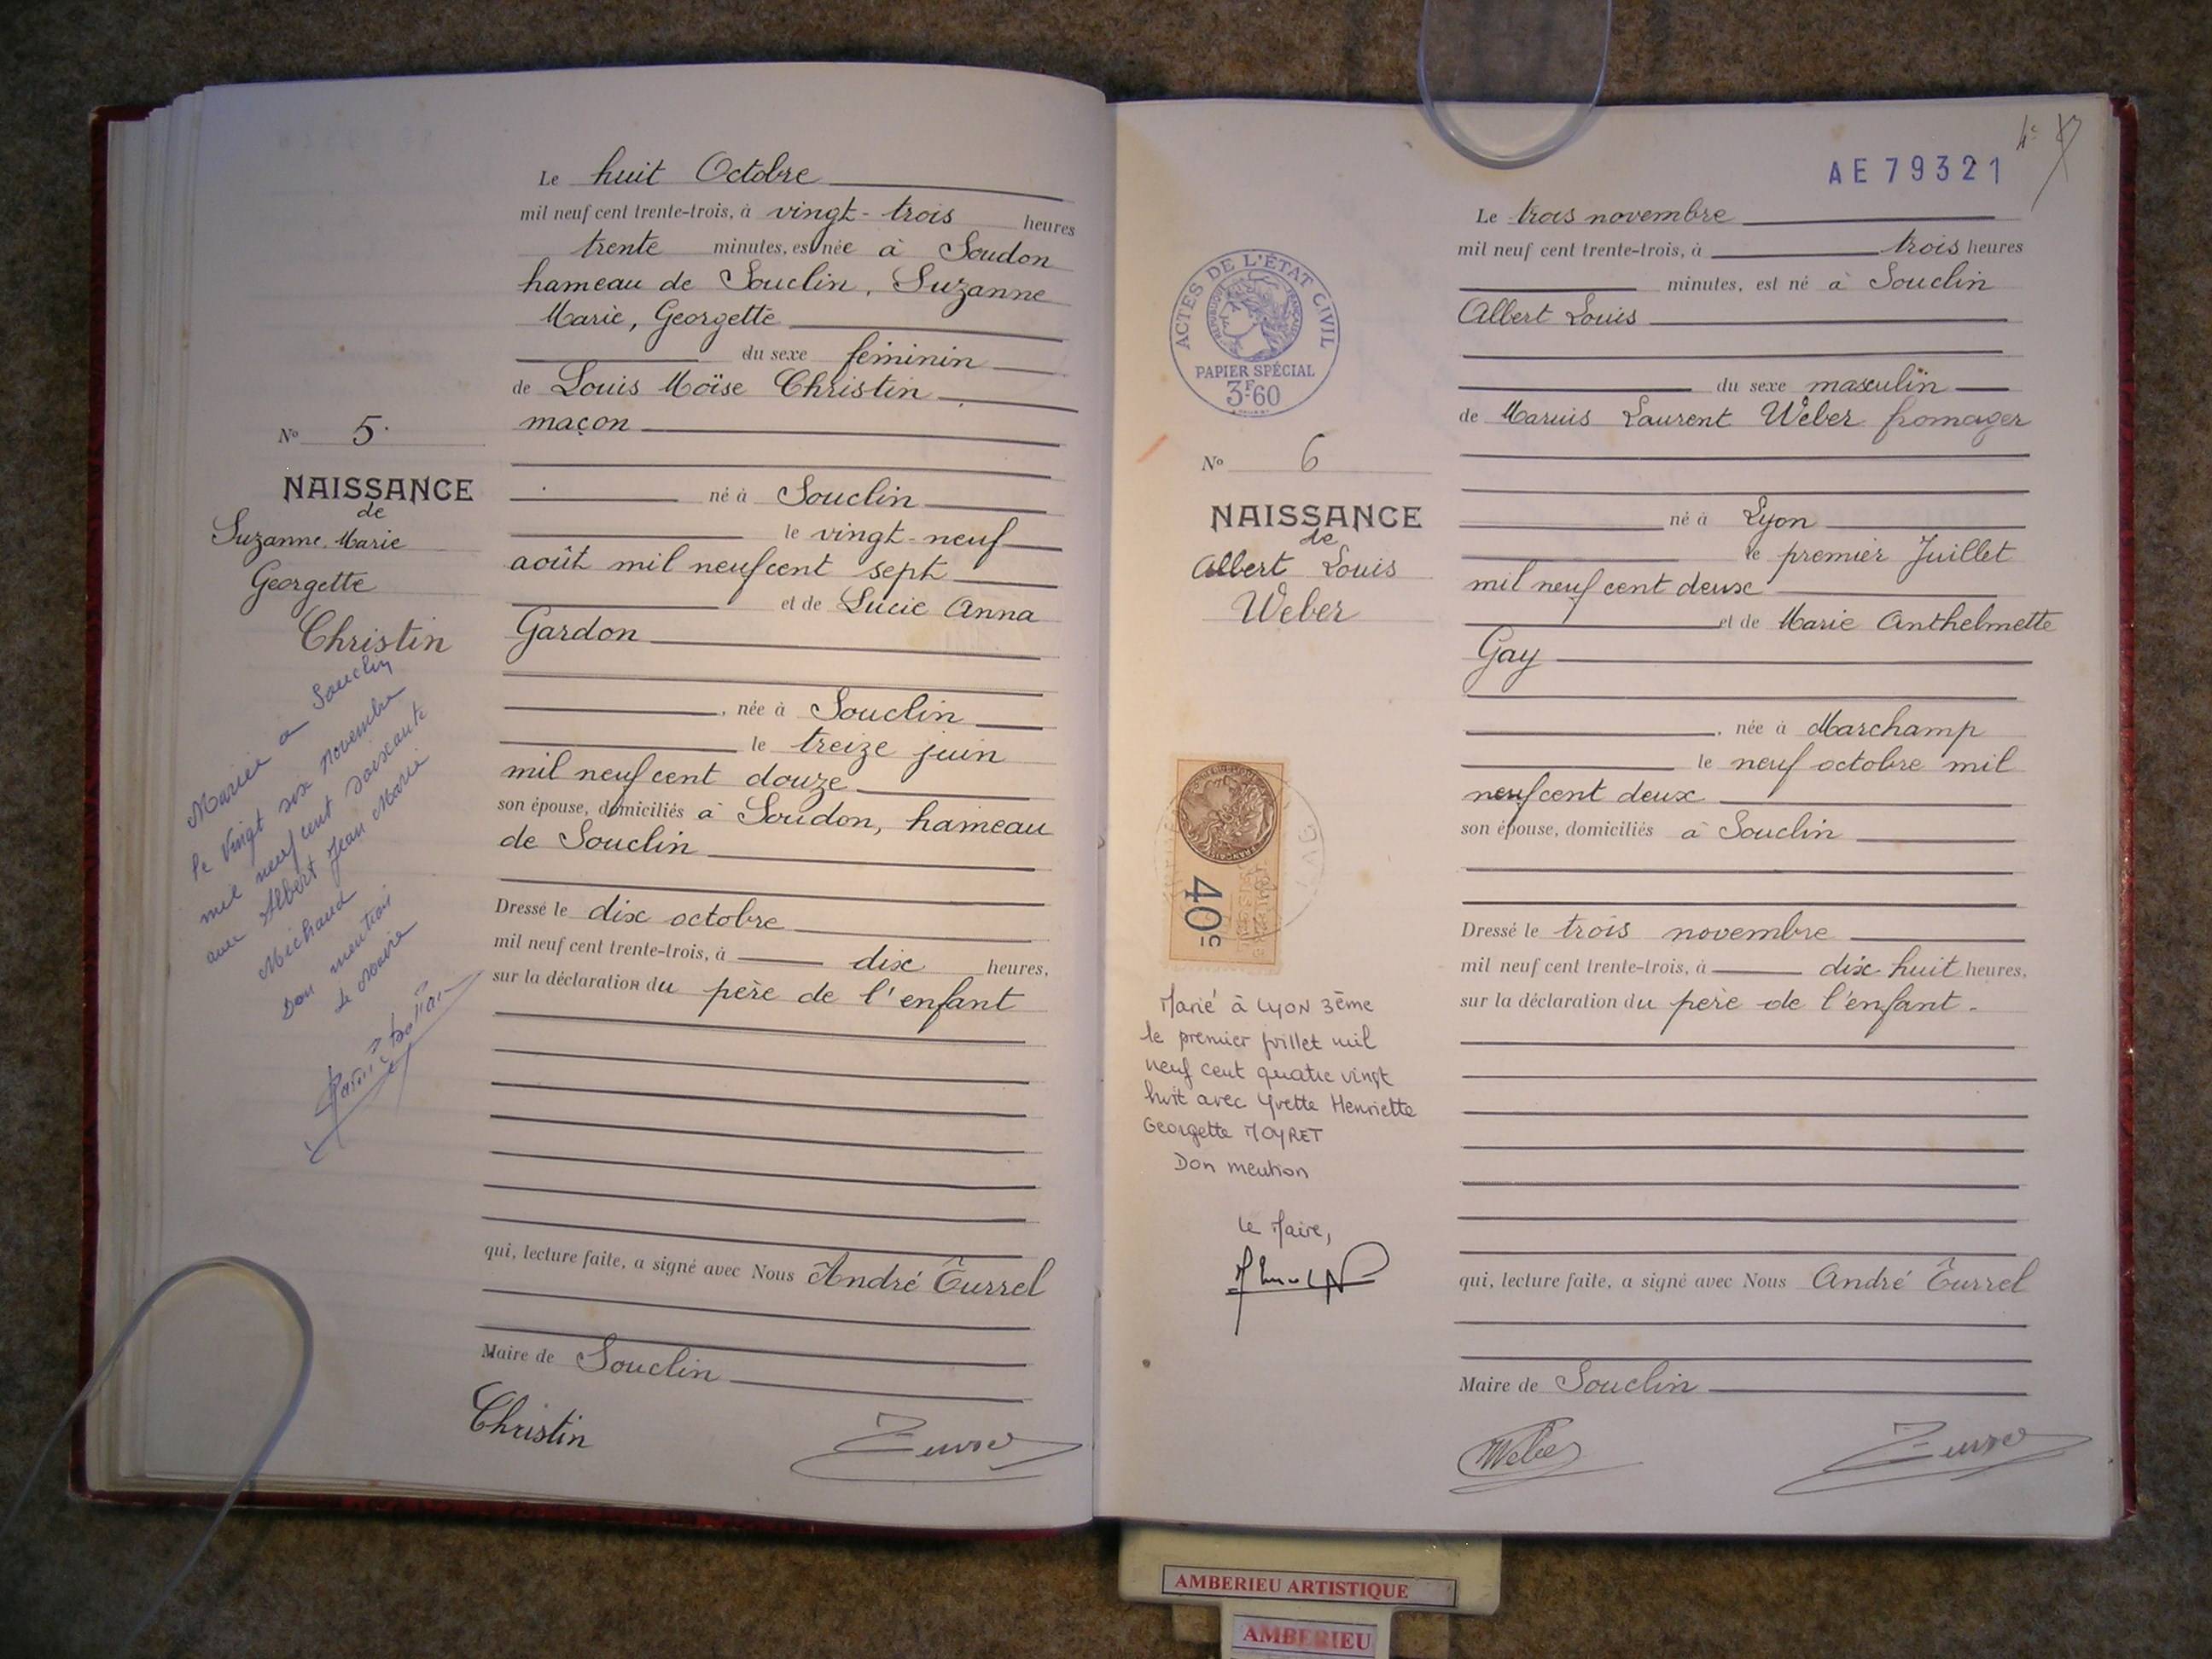 Le huit Octobre
mil neuf cent trente-trois, à vingt-trois heures
trente minutes, est née à Soudon
hameau de Souclin, Suzanne
Marie, Georgette
du sexe féminin
de Louis Moïse Christin
maçon
né à Souclin
le vingt-neuf
août mil neuf cent sept
et de Lucie Anna
Gardon
, née à Souclin
le treize juin
mil neuf cent douze
son épouse, domiciliés à Soudon, hameau
de Souclin
Dressé le dix octobre
mil neuf cent trente-trois, à dix heures,
sur la déclaration du père de l'enfant
qui, lecture faite, a signé avec Nous André Turrel
Maire de Souclin
Christin
No 5.
NAISSANCE
de
Suzanne. Marie
Georgette
Christin
Mariée a Souclin
le Vingt six novembre
mil neuf cent soixante
avec Albert Jean Marie
Michaud
Don mention
Le Maire
4e
AE79321
Le trois novembre
mil neuf cent trente-trois, à trois heures
minutes, est né à Souclin
Albert Louis
du sexe masculin
de Marius Laurent Weber fromager
né à Lyon
le premier Juillet
mil neuf cent deux
et de Marie Anthelmette
Gay
, née à Marchamp
le neuf octobre mil
neuf cent deux
son épouse, domiciliés à Souclin
Dressé le trois novembre
mil neuf cent trente-trois, à dix huit heures,
sur la déclaration du père de l'enfant.
qui, lecture faite, a signé avec Nous André Turrel
Maire de Souclin
Weber
ACTES DE L'ÉTAT CIVIL
RÉPUBLIQUE FRANÇAISE
PAPIER SPÉCIAL
3F60
No 6
NAISSANCE
de
Albert Louis
Weber
40c
Marié à LYON 3ème
le premier juillet mil
neuf cent quatre vingt
huit avec Yvette Henriette
Georgette MOYRET
Don mention
Le Maire,
AMBERIEU ARTISTIQUE
AMBERIEU